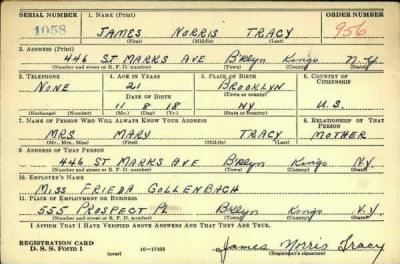 SERIAL NUMBER 1. NAME (Print) ORDER NUMBER
1058 JAMES NORRIS TRACY 956
(First) (Middle) (Last)
2. ADDRESS (Print)
446 ST MARKS AVE BKlyn Kings N.Y
(Number and street or R. F. D. number) (Town) (County) (State)
3. TELEPHONE 4. AGE IN YEARS 5. PLACE OF BIRTH 6. COUNTRY OF CITIZENSHIP
NONE 21 BROOKLYN
DATE OF BIRTH (Town or county)
11 8 18 NY U.S.
(Exchange) (Number) (Mo.) (Day) (Yr.) (State or country)
7. NAME OF PERSON WHO WILL ALWAYS KNOW YOUR ADDRESS 8. RELATIONSHIP OF THAT PERSON
MRS MARY TRACY MOTHER
(Mr., Mrs., Miss) (First) (Middle) (Last)
9. ADDRESS OF THAT PERSON
446 ST MARKS AVE BKlyn Kings NY.
(Number and street or R. F. D. number) (Town) (County) (State)
10. EMPLOYER'S NAME
MISS FRIEDA GOLLENBACH
11. PLACE OF EMPLOYMENT OR BUSINESS
555 PROSPECT PL BKlyn Kings N.Y.
(Number and street or R. F. D. number) (Town) (County) (State)
I AFFIRM THAT I HAVE VERIFIED ABOVE ANSWERS AND THAT THEY ARE TRUE.
REGISTRATION CARD
D. S. S. FORM 1 (over) James Norris Tracy
(Registrant's signature)